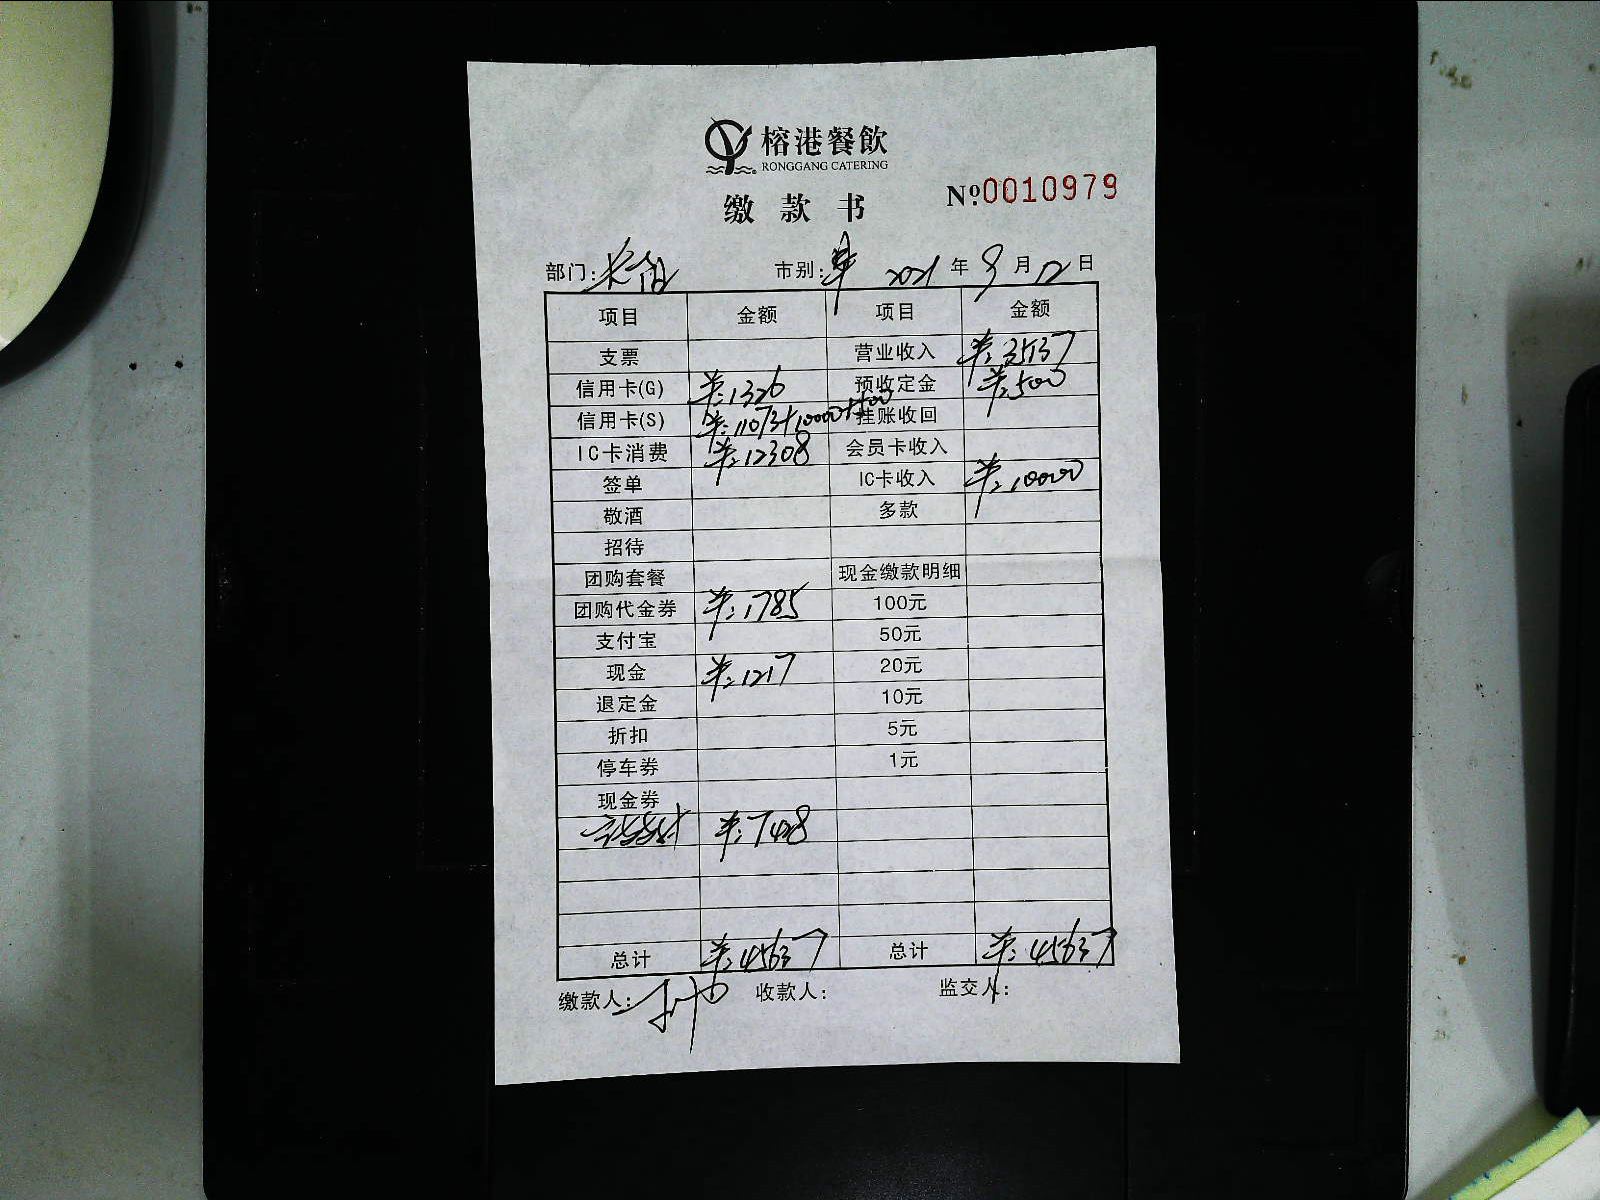 榕港餐飲
RONGGANG CATERING
缴款书 Nº:0010979
部门: 市别: 2021年9月12日
项目 金额 项目 金额
支票 营业收入 羊:35137
信用卡(G) 羊:1326 预收定金 羊:500
信用卡(S) 羊:11073+10000+500 挂账收回
IC卡消费 羊:12308 会员卡收入
签单 IC卡收入 羊:10000
敬酒 多款
招待
团购套餐 现金缴款明细
团购代金券 羊:1785 100元
支付宝 50元
现金 羊:1217 20元
退定金 10元
折扣 5元
停车券 1元
现金券
羊:7428
总计 羊:45637 总计 羊:45637
缴款人: 收款人: 监交人: